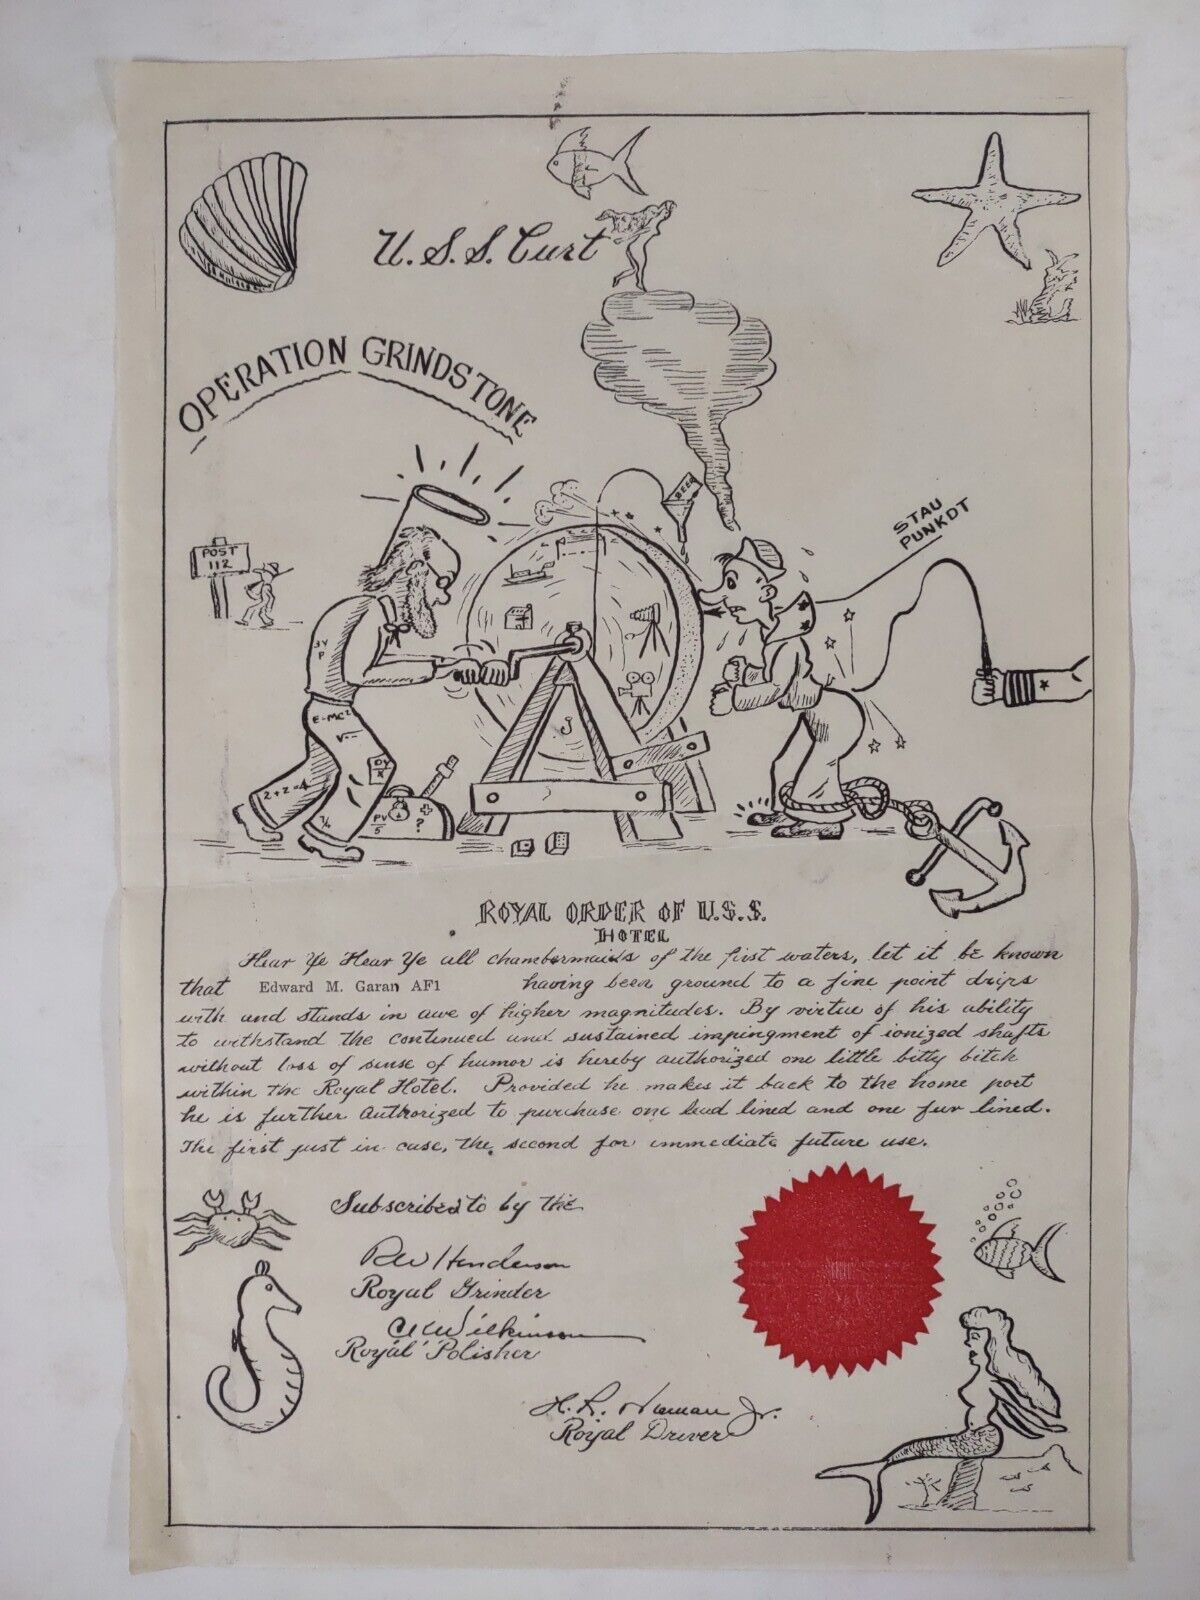 U.S.S. Curt
OPERATION GRINDSTONE
BEER
STAU
PUNKDT
POST
112
3V
P
E-MC2
√--
2+2=4
DV
X
¼
PV
5
?
ROYAL ORDER OF U.S.S.
HOTEL
Hear Ye Hear Ye all chambermaids of the first waters, let it be known
that Edward M. Garan AF1 having been ground to a fine point drips
with and stands in awe of higher magnitudes. By virtue of his ability
to withstand the continued and sustained impingment of ionized shafts
without loss of sense of humor is hereby authorized one little bitty bitch
within the Royal Hotel. Provided he makes it back to the home port
he is further authorized to purchase one lead lined and one fur lined.
The first just in case, the second for immediate future use.
Subscribed to by the
RW Henderson
Royal Grinder
Wilkinson
Royal Polisher
H. R. Jr.
Royal Driver